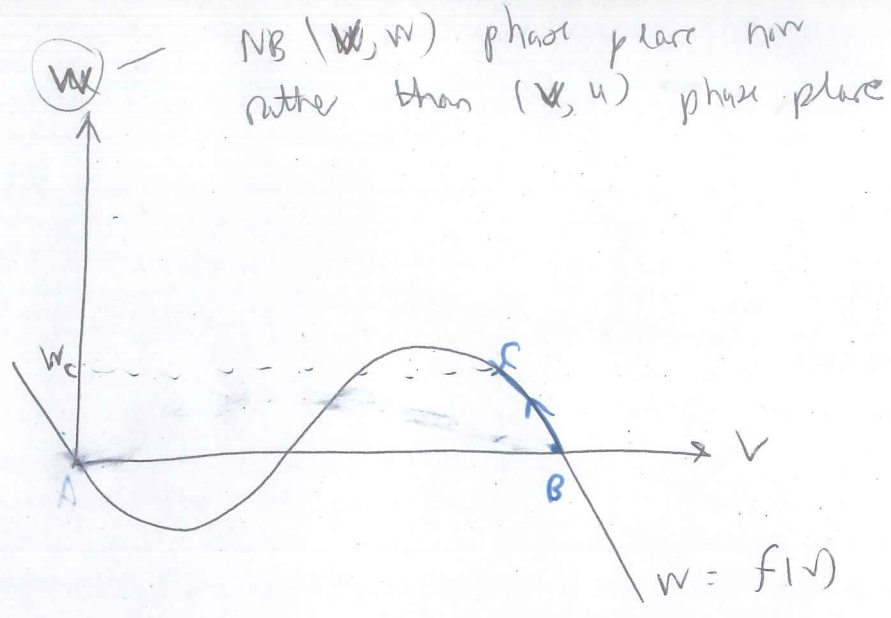 NB (V, W) phase plane now
rather than (V, u) phase plane
W
Wc
C
A
B
V
W = f(V)